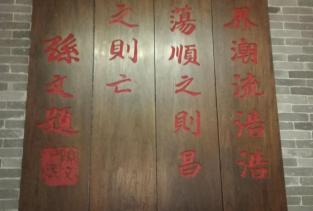 界潮流浩浩
蕩順之則昌
之則亡
孫文題